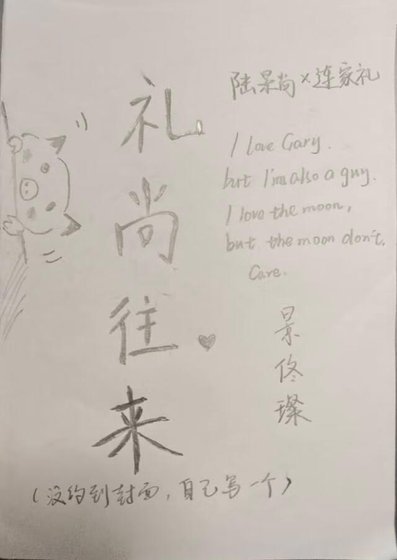 礼尚往来
陆景尚×连家礼
I love Gary.
but I'm also a guy.
I love the moon,
but the moon don't.
Care.
景佟璨
(没约到封面,自己写一个)